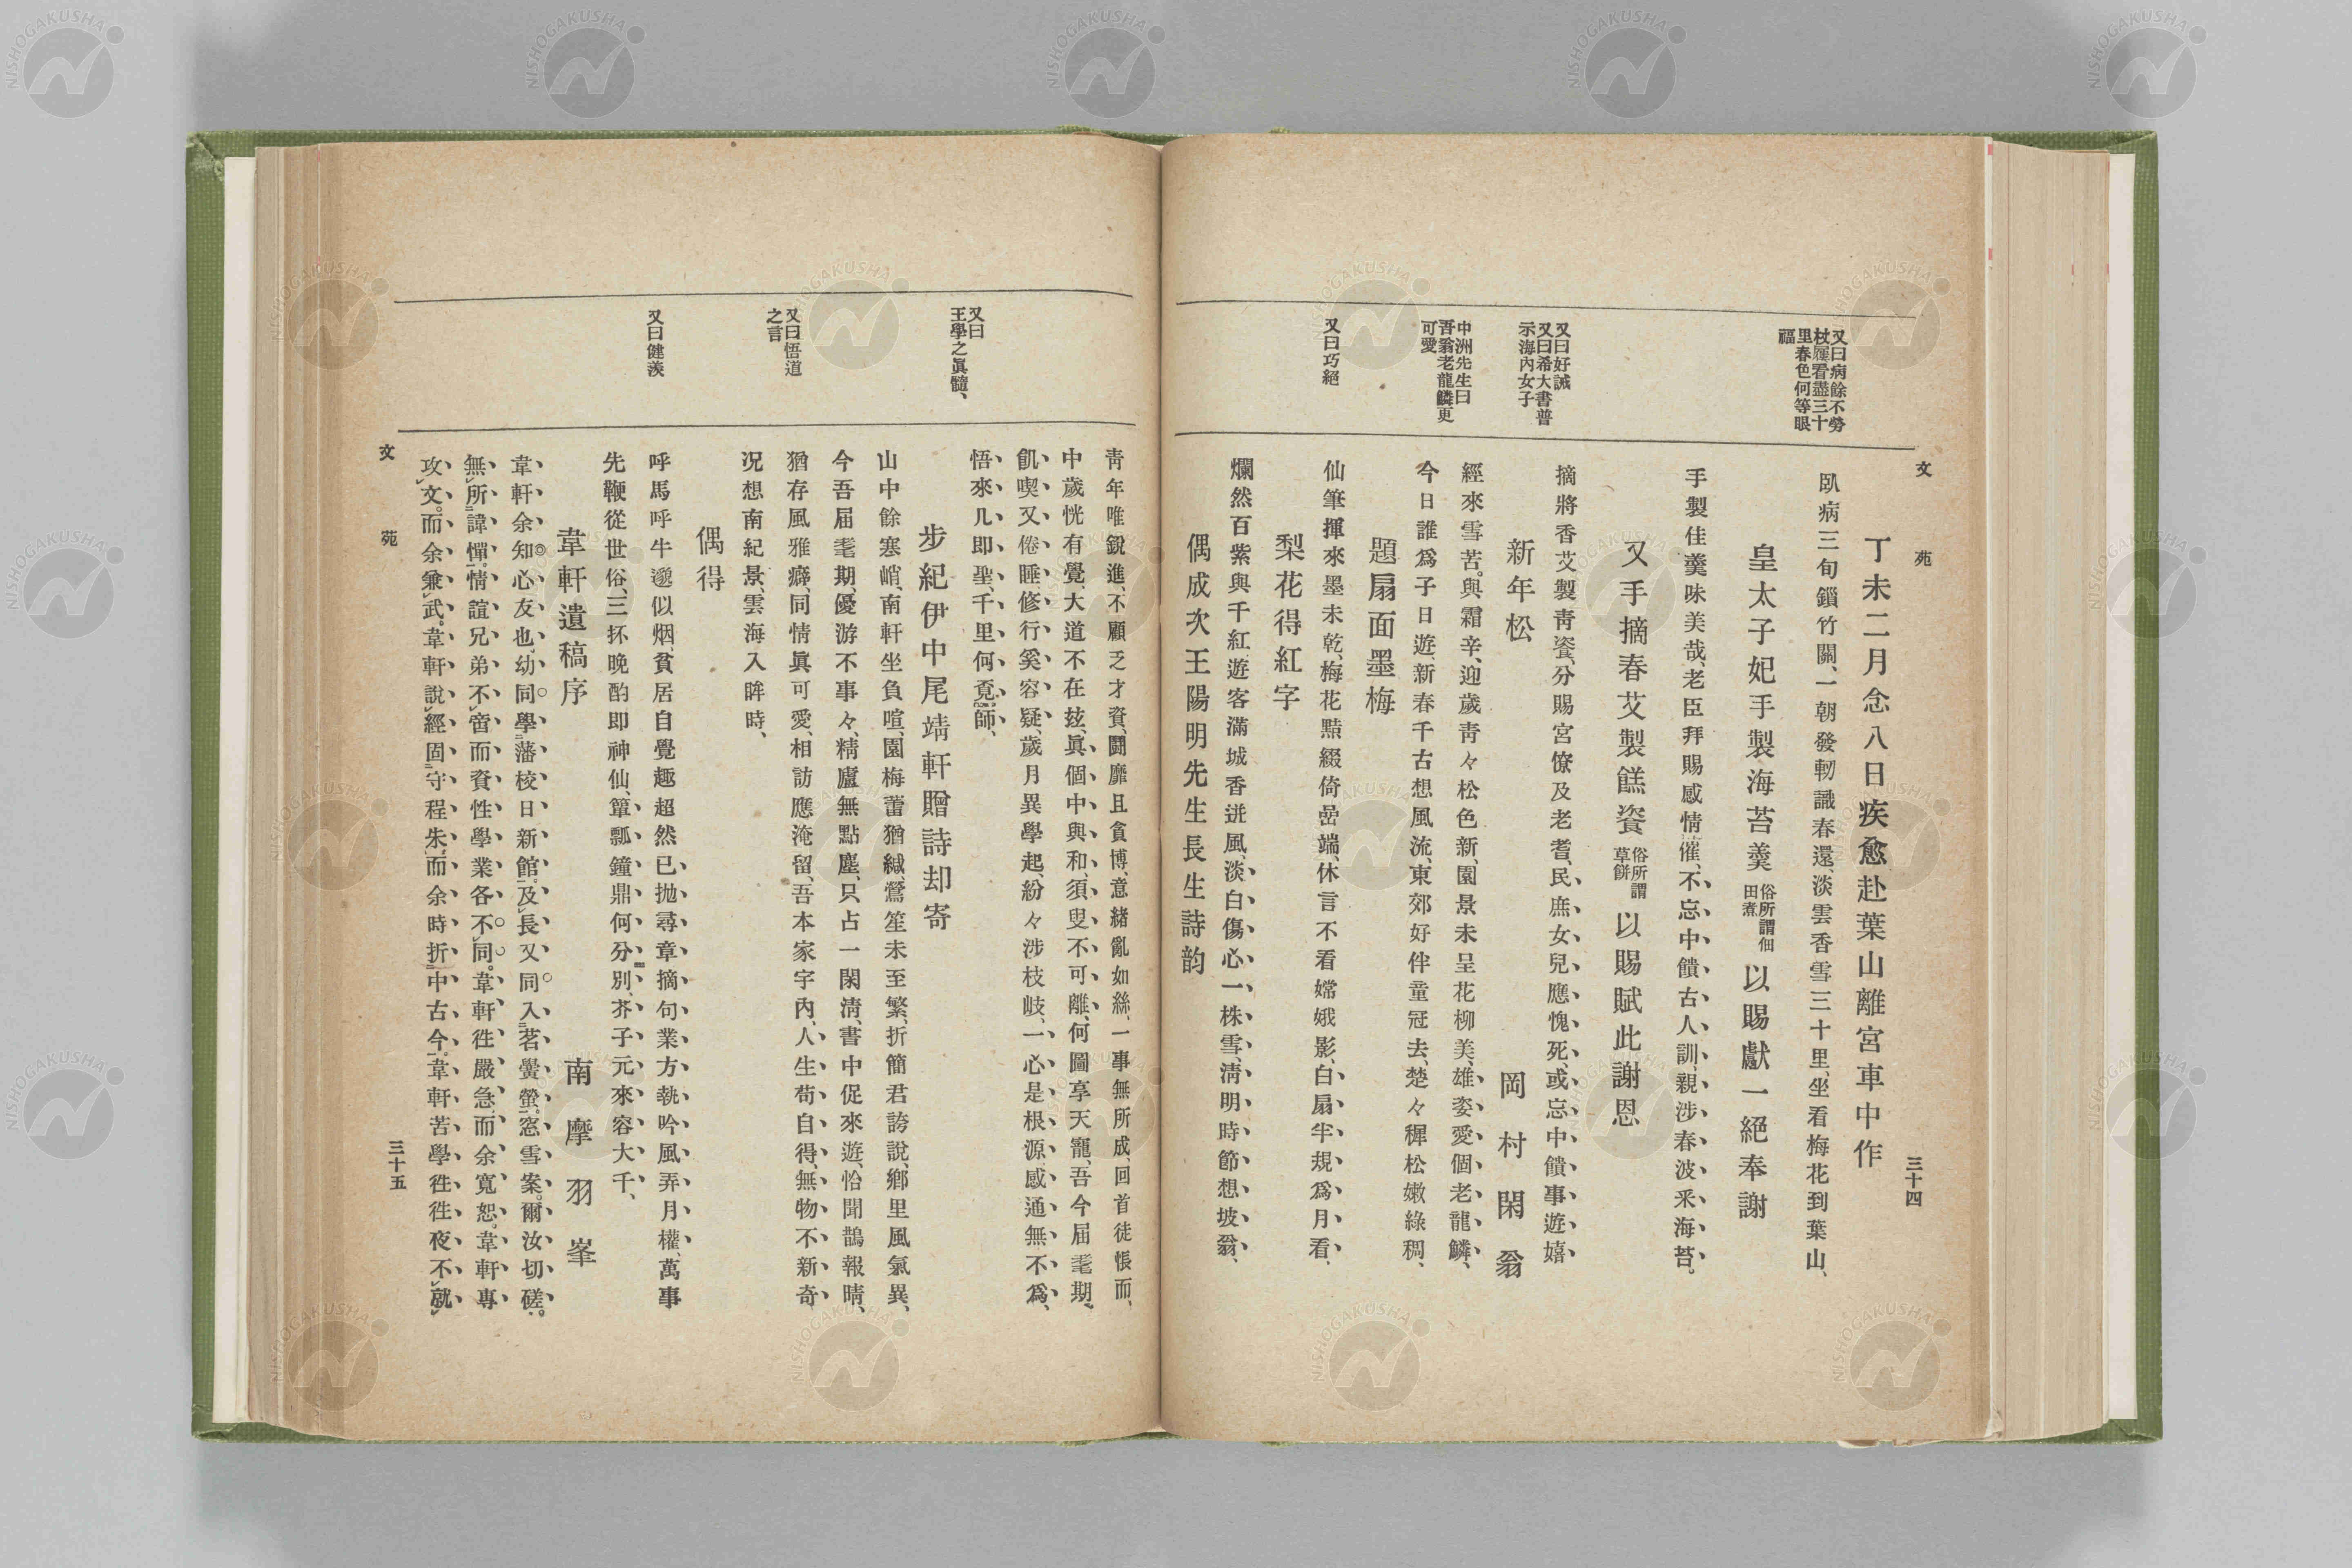 文苑
三十四
又曰病餘不勞
杖履看盡三十
里春色何等眼
福
丁未二月念八日疾愈赴葉山離宮車中作
臥病三旬鎖竹關、一朝發軔識春還、淡雲香雪三十里、坐看梅花到葉山、
皇太子妃手製海苔羹俗所謂佃田煮以賜獻一絕奉謝
手製佳羹味美哉、老臣拜賜感情催、不忘中饋古人訓、親涉春波采海苔。
又手摘春艾製餻餈俗所謂草餅以賜賦此謝恩
又曰好誡
又曰希大書普
示海內女子
摘將香艾製靑餈、分賜宮僚及老耆、民庶女兒應愧死、或忘中饋事遊嬉
新年松
岡村閑翁
中洲先生曰
吾翁老龍鱗更
可愛
經來雪苦。與霜辛、迎歲靑々松色新、園景未呈花柳美、雄姿愛個老龍鱗、
今日誰爲子日遊、新春千古想風流、東郊好伴童冠去、楚々穉松嫩綠稠、
題扇面墨梅
又曰巧絕
仙筆揮來墨未乾、梅花㸃綴倚嵒端、休言不看嫦娥影、白扇半規爲月看、
梨花得紅字
爛然百紫與千紅、遊客滿城香迸風、淡白傷心一株雪、淸明時節想坡翁、
偶成次王陽明先生長生詩韵
靑年唯銳進、不顧乏才資、鬪靡且貪博、意緒亂如絲、一事無所成、回首徒悵而、
中歲恍有覺、大道不在玆、眞個中與和、須叟不可離、何圖享天寵、吾今届耄期、
又曰
王學之眞髓、
飢喫又倦睡、修行奚容疑、歲月異學起、紛々涉枝岐、一心是根源、感通無不爲、
悟來几即聖、千里何覔師、
步紀伊中尾靖軒贈詩却寄
山中餘寒峭、南軒坐負喧、園梅蕾猶緘、鶯笙未至繁、折簡君誇說、鄕里風氣異、
今吾届耄期、優游不事々、精廬無點塵、只占一閑淸、書中促來遊、恰聞鵲報晴、
又曰悟道
之言
猶存風雅癖、同情眞可愛、相訪應淹留、吾本家宇內、人生苟自得、無物不新奇
況想南紀景、雲海入眸時、
偶得
又曰健羨
呼馬呼牛邈似烟、貧居自覺趣超然、已抛尋章摘句業、方執吟風弄月權、萬事
先鞭從世俗、三抔晚酌即神仙、簞瓢鐘鼎何分別、芥子元來容大千、
韋軒遺稿序
南摩羽峯
韋軒余知心友也、幼同學藩校日新館。及長又同入茗黌。螢窓雪案。爾汝切磋。
無所諱憚。情誼兄弟不啻而資性學業各不同。韋軒徃嚴急、而余寬恕。韋軒專
攻文。而余兼武。韋軒說經固守程朱、而余時折中古今。韋軒苦學徃徃夜不就
文苑
三十五